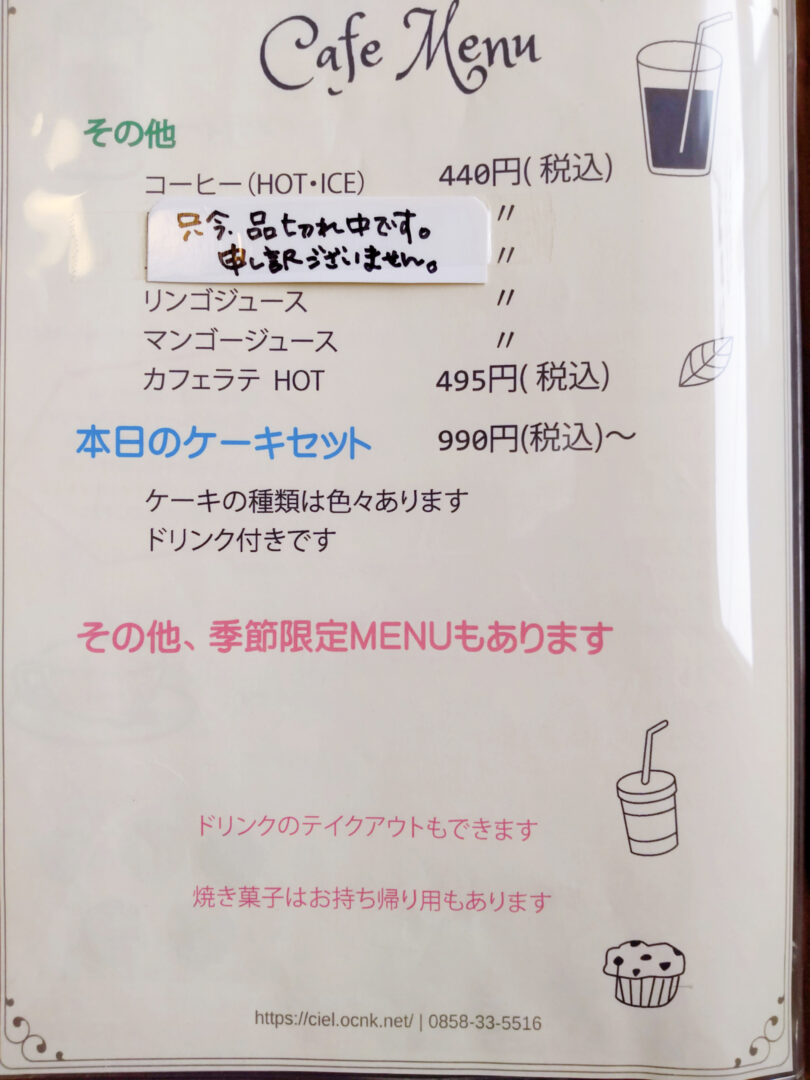 Cafe Menu
その他
コーヒー(HOT・ICE) 440円( 税込)
只今、品切れ中です。 〃
申し訳ございません。 〃
リンゴジュース 〃
マンゴージュース 〃
カフェラテ HOT 495円( 税込)
本日のケーキセット 990円(税込)～
ケーキの種類は色々あります
ドリンク付きです
その他、季節限定MENUもあります
ドリンクのテイクアウトもできます
焼き菓子はお持ち帰り用もあります
https://ciel.ocnk.net/ | 0858-33-5516